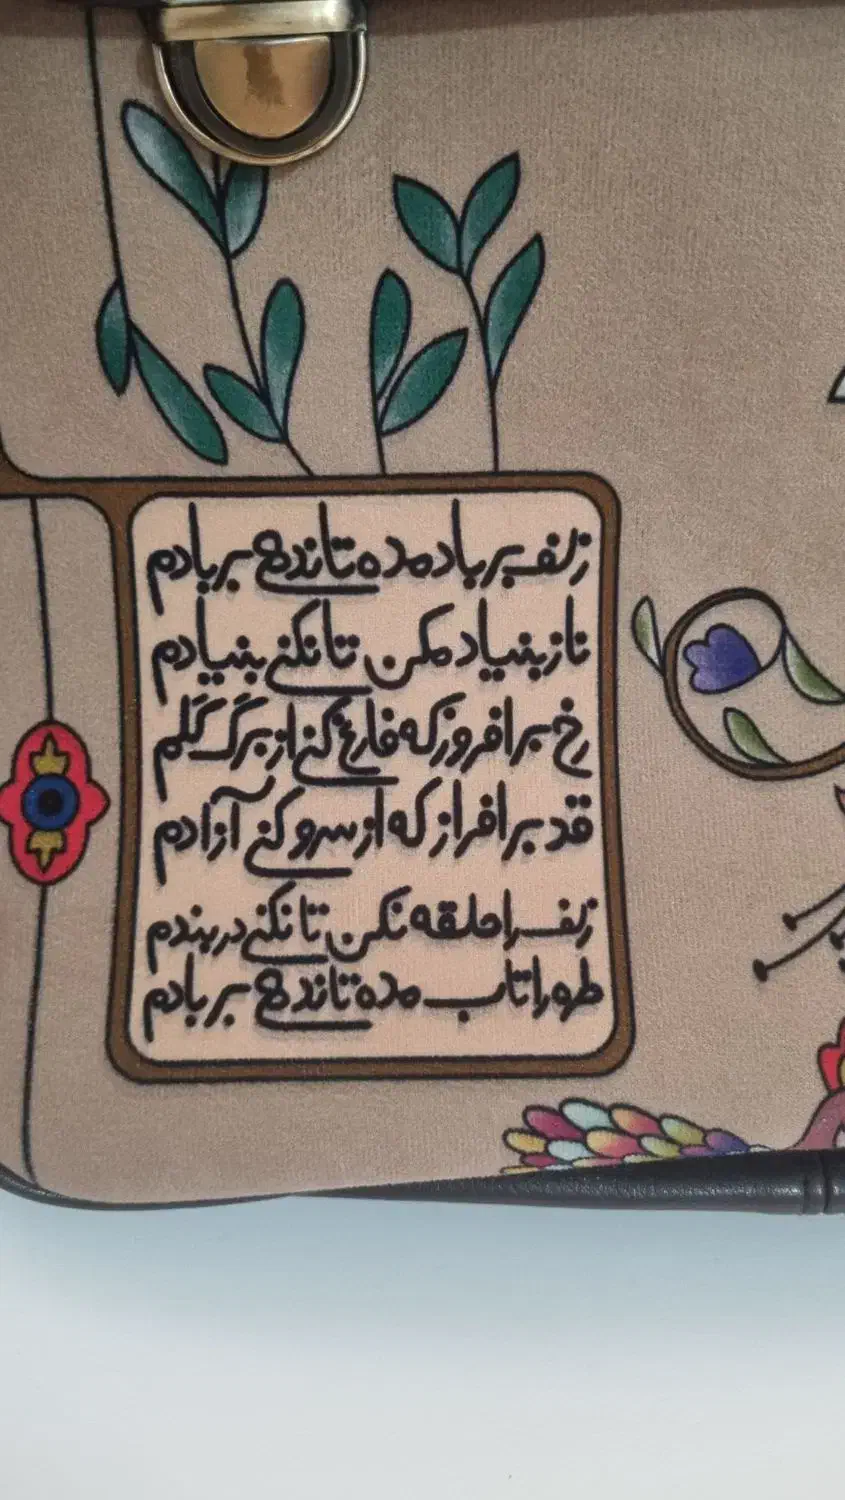 زلف بر باد مده تا ندهی بر بادم
ناز بنیاد مکن تا نکنی بنیادم
رخ برافروز که فارغ کنی از برگ گلم
قد برافراز که از سرو کنی آزادم
زلف را حلقه نکن تا نکنی در بندم
طره را تاب مده تا ندهی بر بادم